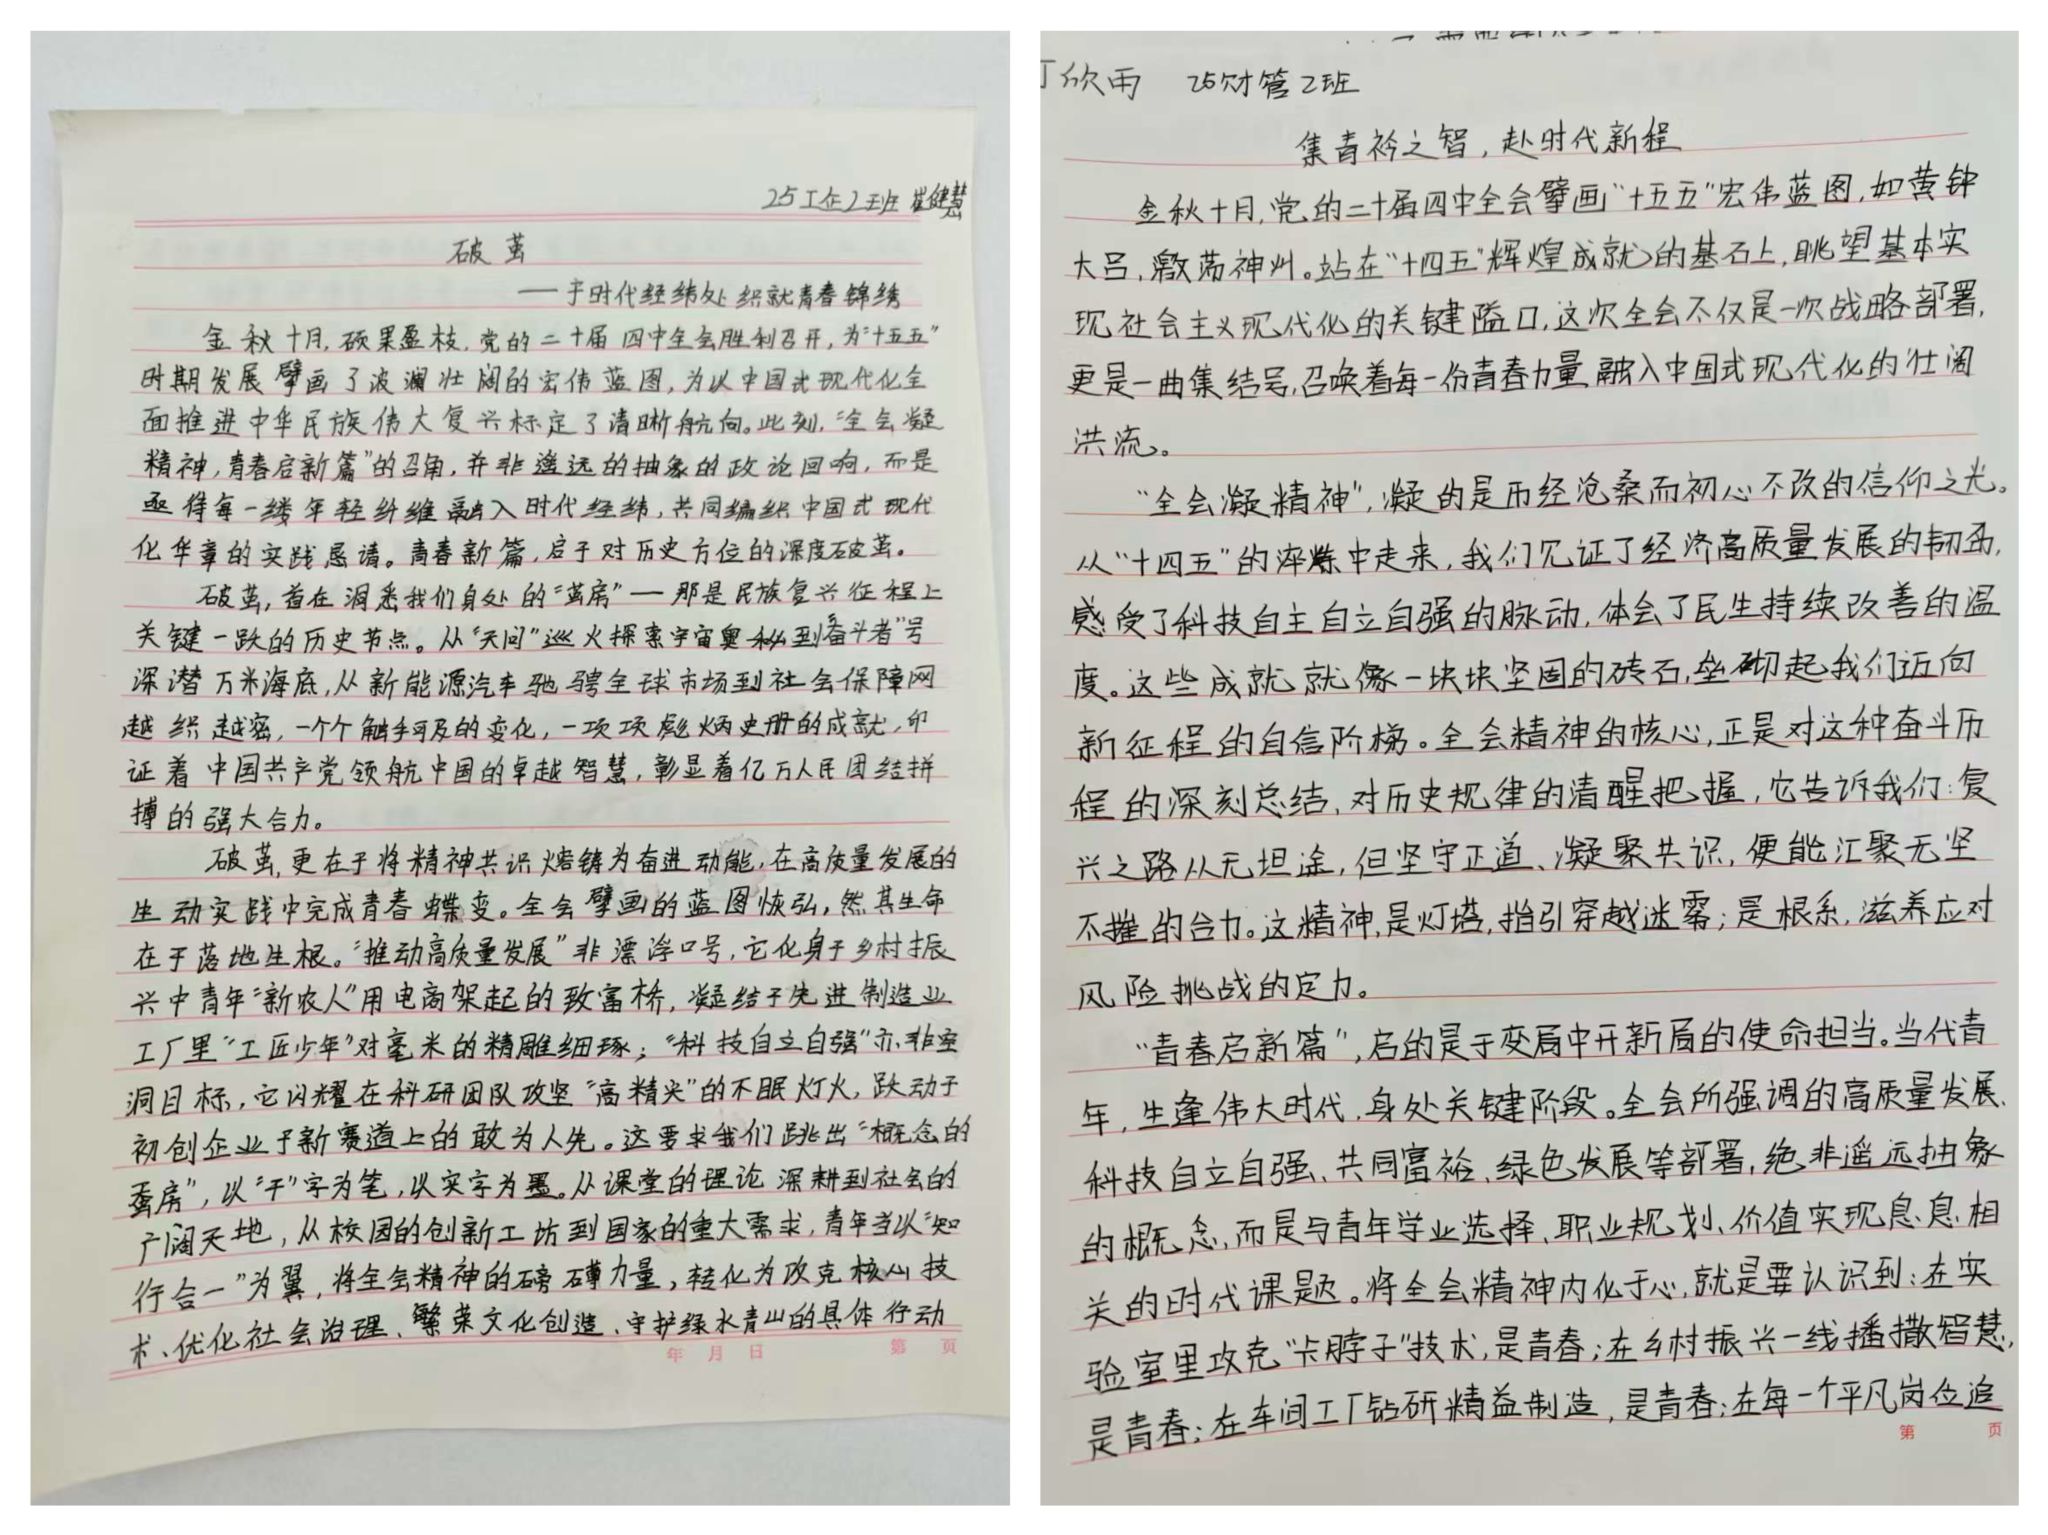 25工企2班 崔健慧
破茧
——于时代经纬处织就青春锦绣
金秋十月，硕果盈枝，党的二十届四中全会胜利召开，为“十五五”
时期发展擘画了波澜壮阔的宏伟蓝图，为以中国式现代化全
面推进中华民族伟大复兴标定了清晰航向。此刻，“全会凝
精神，青春启新篇”的召角，并非遥远的抽象的政论回响，而是
亟待每一缕年轻纤维融入时代经纬，共同编织中国式现代
化华章的实践恳请。青春新篇，启于对历史方位的深度破茧。
破茧，首在洞悉我们身处的“茧房”—那是民族复兴征程上
关键一跃的历史节点。从“天问”巡火探索宇宙奥秘到“奋斗者”号
深潜万米海底，从新能源汽车驰骋全球市场到社会保障网
越织越密，一个个触手可及的变化，一项项彪炳史册的成就，印
证着中国共产党领航中国的卓越智慧，彰显着亿万人民团结拼
搏的强大合力。
破茧，更在于将精神共识熔铸为奋进动能，在高质量发展的
生动实践中完成青春蝶变。全会擘画的蓝图恢弘，然其生命
在于落地生根。“推动高质量发展”非漂浮口号，它化身于乡村振
兴中青年“新农人”用电商架起的致富桥，凝结于先进制造业
工厂里“工匠少年”对毫米的精雕细琢；“科技自立自强”亦非空
洞目标，它闪耀在科研团队攻坚“高精尖”的不眠灯火，跃动于
初创企业于新赛道上的敢为人先。这要求我们跳出“概念的
茧房”，以“干”字为笔，以实字为墨。从课堂的理论深耕到社会的
广阔天地，从校园的创新工坊到国家的重大需求，青年当以“知
行合一”为翼，将全会精神的磅礴力量，转化为攻克核心技
术、优化社会治理、繁荣文化创造、守护绿水青山的具体行动
年 月 日 第 页
欣雨 25财管2班
集青衿之智，赴时代新程
金秋十月，党的二十届四中全会擘画“十五五”宏伟蓝图，如黄钟
大吕，激荡神州。站在“十四五”辉煌成就的基石上，眺望基本实
现社会主义现代化的关键隘口，这次全会不仅是一次战略部署，
更是一曲集结号，召唤着每一份青春力量融入中国式现代化的壮阔
洪流。
“全会凝精神”，凝的是历经沧桑而初心不改的信仰之光。
从“十四五”的淬炼中走来，我们见证了经济高质量发展的韧函，
感受了科技自主自立自强的脉动，体会了民生持续改善的温
度。这些成就就像一块块坚固的砖石，垒砌起我们迈向
新征程的自信阶梯。全会精神的核心，正是对这种奋斗历
程的深刻总结，对历史规律的清醒把握，它告诉我们：复
兴之路从无坦途，但坚守正道、凝聚共识，便能汇聚无坚
不摧的合力。这精神，是灯塔，指引穿越迷雾；是根系，滋养应对
风险挑战的定力。
“青春启新篇”，启的是于变局中开新局的使命担当。当代青
年，生逢伟大时代，身处关键阶段。全会所强调的高质量发展、
科技自立自强、共同富裕、绿色发展等部署，绝非遥远抽象
的概念，而是与青年学业选择、职业规划、价值实现息息相
关的时代课题。将全会精神内化于心，就是要认识到：在实
验室里攻克“卡脖子”技术，是青春；在乡村振兴一线播撒智慧，
是青春；在车间工厂钻研精益制造，是青春；在每一个平凡岗位追
第 页